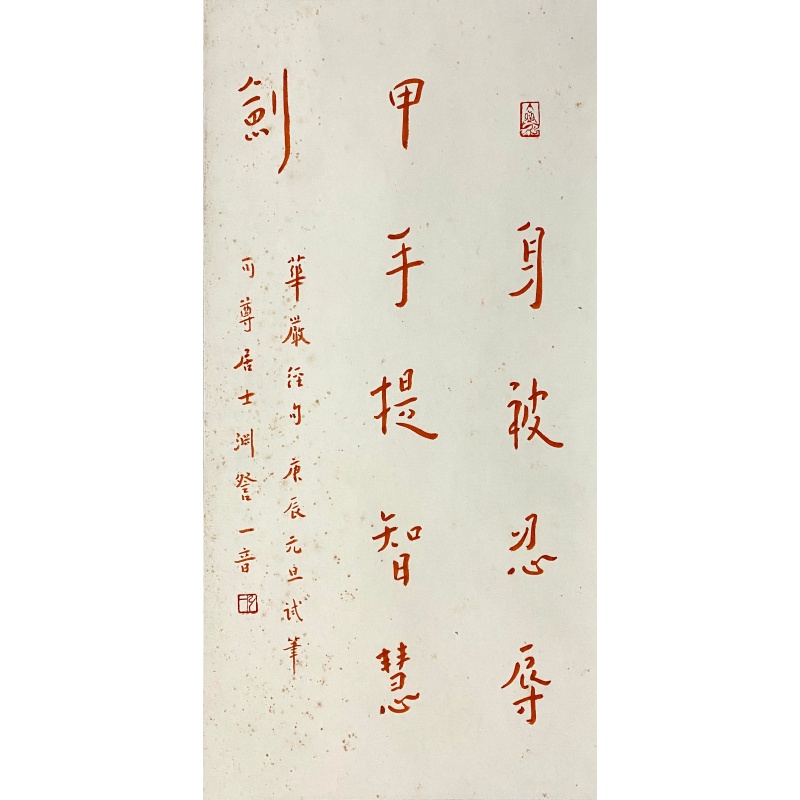 身被忍辱
甲手提智慧
劍
華嚴經句庚辰元旦試筆
可尊居士淵詧一音